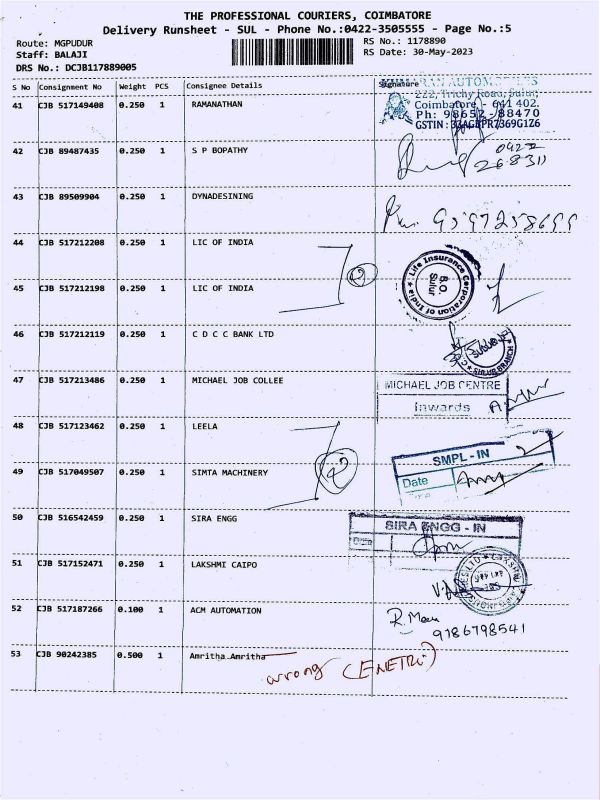 THE PROFESSIONAL COURIERS, COIMBATORE
Delivery Runsheet - SUL - Phone No.:0422-3505555 - Page No.:5
Route: MGPUDUR
RS No.: 1178890
Staff: BALAJI
RS Date: 30-May-2023
DRS No.: DCJB117889005
S No Consignment No Weight PCS Consignee Details Signature
41 CJB 517149408 0.250 1 RAMANATHAN
222, Trichy Road, Sulur,
Coimbatore - 641 402.
Ph: 98652-88470
GSTIN :
42 CJB 89487435 0.250 1 S P BOPATHY
0422
268311
43 CJB 89509904 0.250 1 DYNADESINING
44 CJB 517212208 0.250 1 LIC OF INDIA
2
Life Insurance Corporation of India
B.O.
Sulur
45 CJB 517212198 0.250 1 LIC OF INDIA
46 CJB 517212119 0.250 1 C D C C BANK LTD
47 CJB 517213486 0.250 1 MICHAEL JOB COLLEE
MICHAEL JOB CENTRE
Inwards
48 CJB 517123462 0.250 1 LEELA
SMPL - IN
Date
49 CJB 517049507 0.250 1 SIMTA MACHINERY
50 CJB 516542459 0.250 1 SIRA ENGG
SIRA ENGG - IN
51 CJB 517152471 0.250 1 LAKSHMI CAIPO
52 CJB 517187266 0.100 1 ACM AUTOMATION
9786798541
53 CJB 90242385 0.500 1 Amritha Amritha
wrong